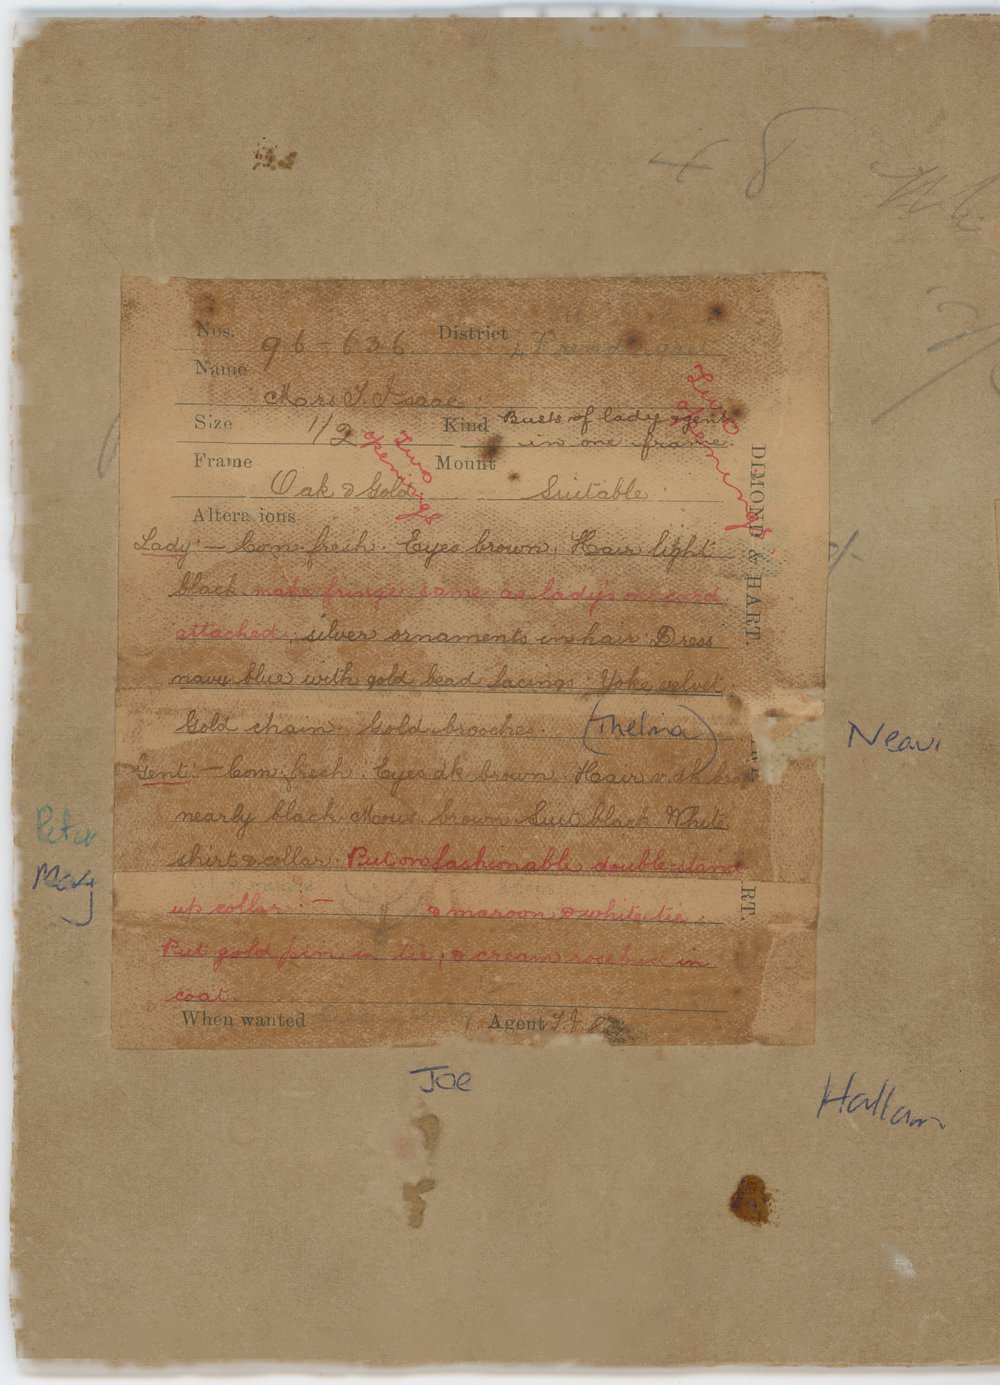 48
Nos. 96-636. District
Name Mrs T. Isaac
Size 1/2 Kind Busts of lady & gent
in one frame.
Two
openings
Two
openings
Frame Oak & Gold Mount Suitable
Alterations
Lady:- Com. fresh. Eyes brown. Hair light
black. make fringe same as lady's on card
attached, silver ornaments in hair. Dress
navy blue with gold bead facings. Yoke velvet
Gold chain. Gold brooches. (Thelma)
Gent:- Com. fresh. Eyes dk brown. Hair v. dk. bro
nearly black. Mous. brown. Suit black. White
shirt & collar. Put on fashionable double stand
up collar - & maroon & white tie
Put gold pin in tie, & cream rosebud in
coat.
When wanted Agent
DIMOND & HART.
RT.
Peter
May
Joe
Hallam